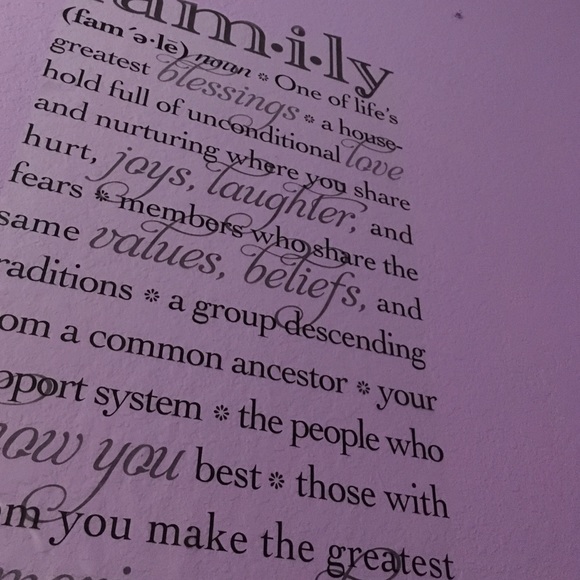 fam·i·ly
(fam´ə·lē) noun * One of life's
greatest blessings * a house-
hold full of unconditional love
and nurturing where you share
hurt, joys, laughter, and
fears * members who share the
same values, beliefs, and
raditions * a group descending
om a common ancestor * your
pport system * the people who
now you best * those with
om you make the greatest